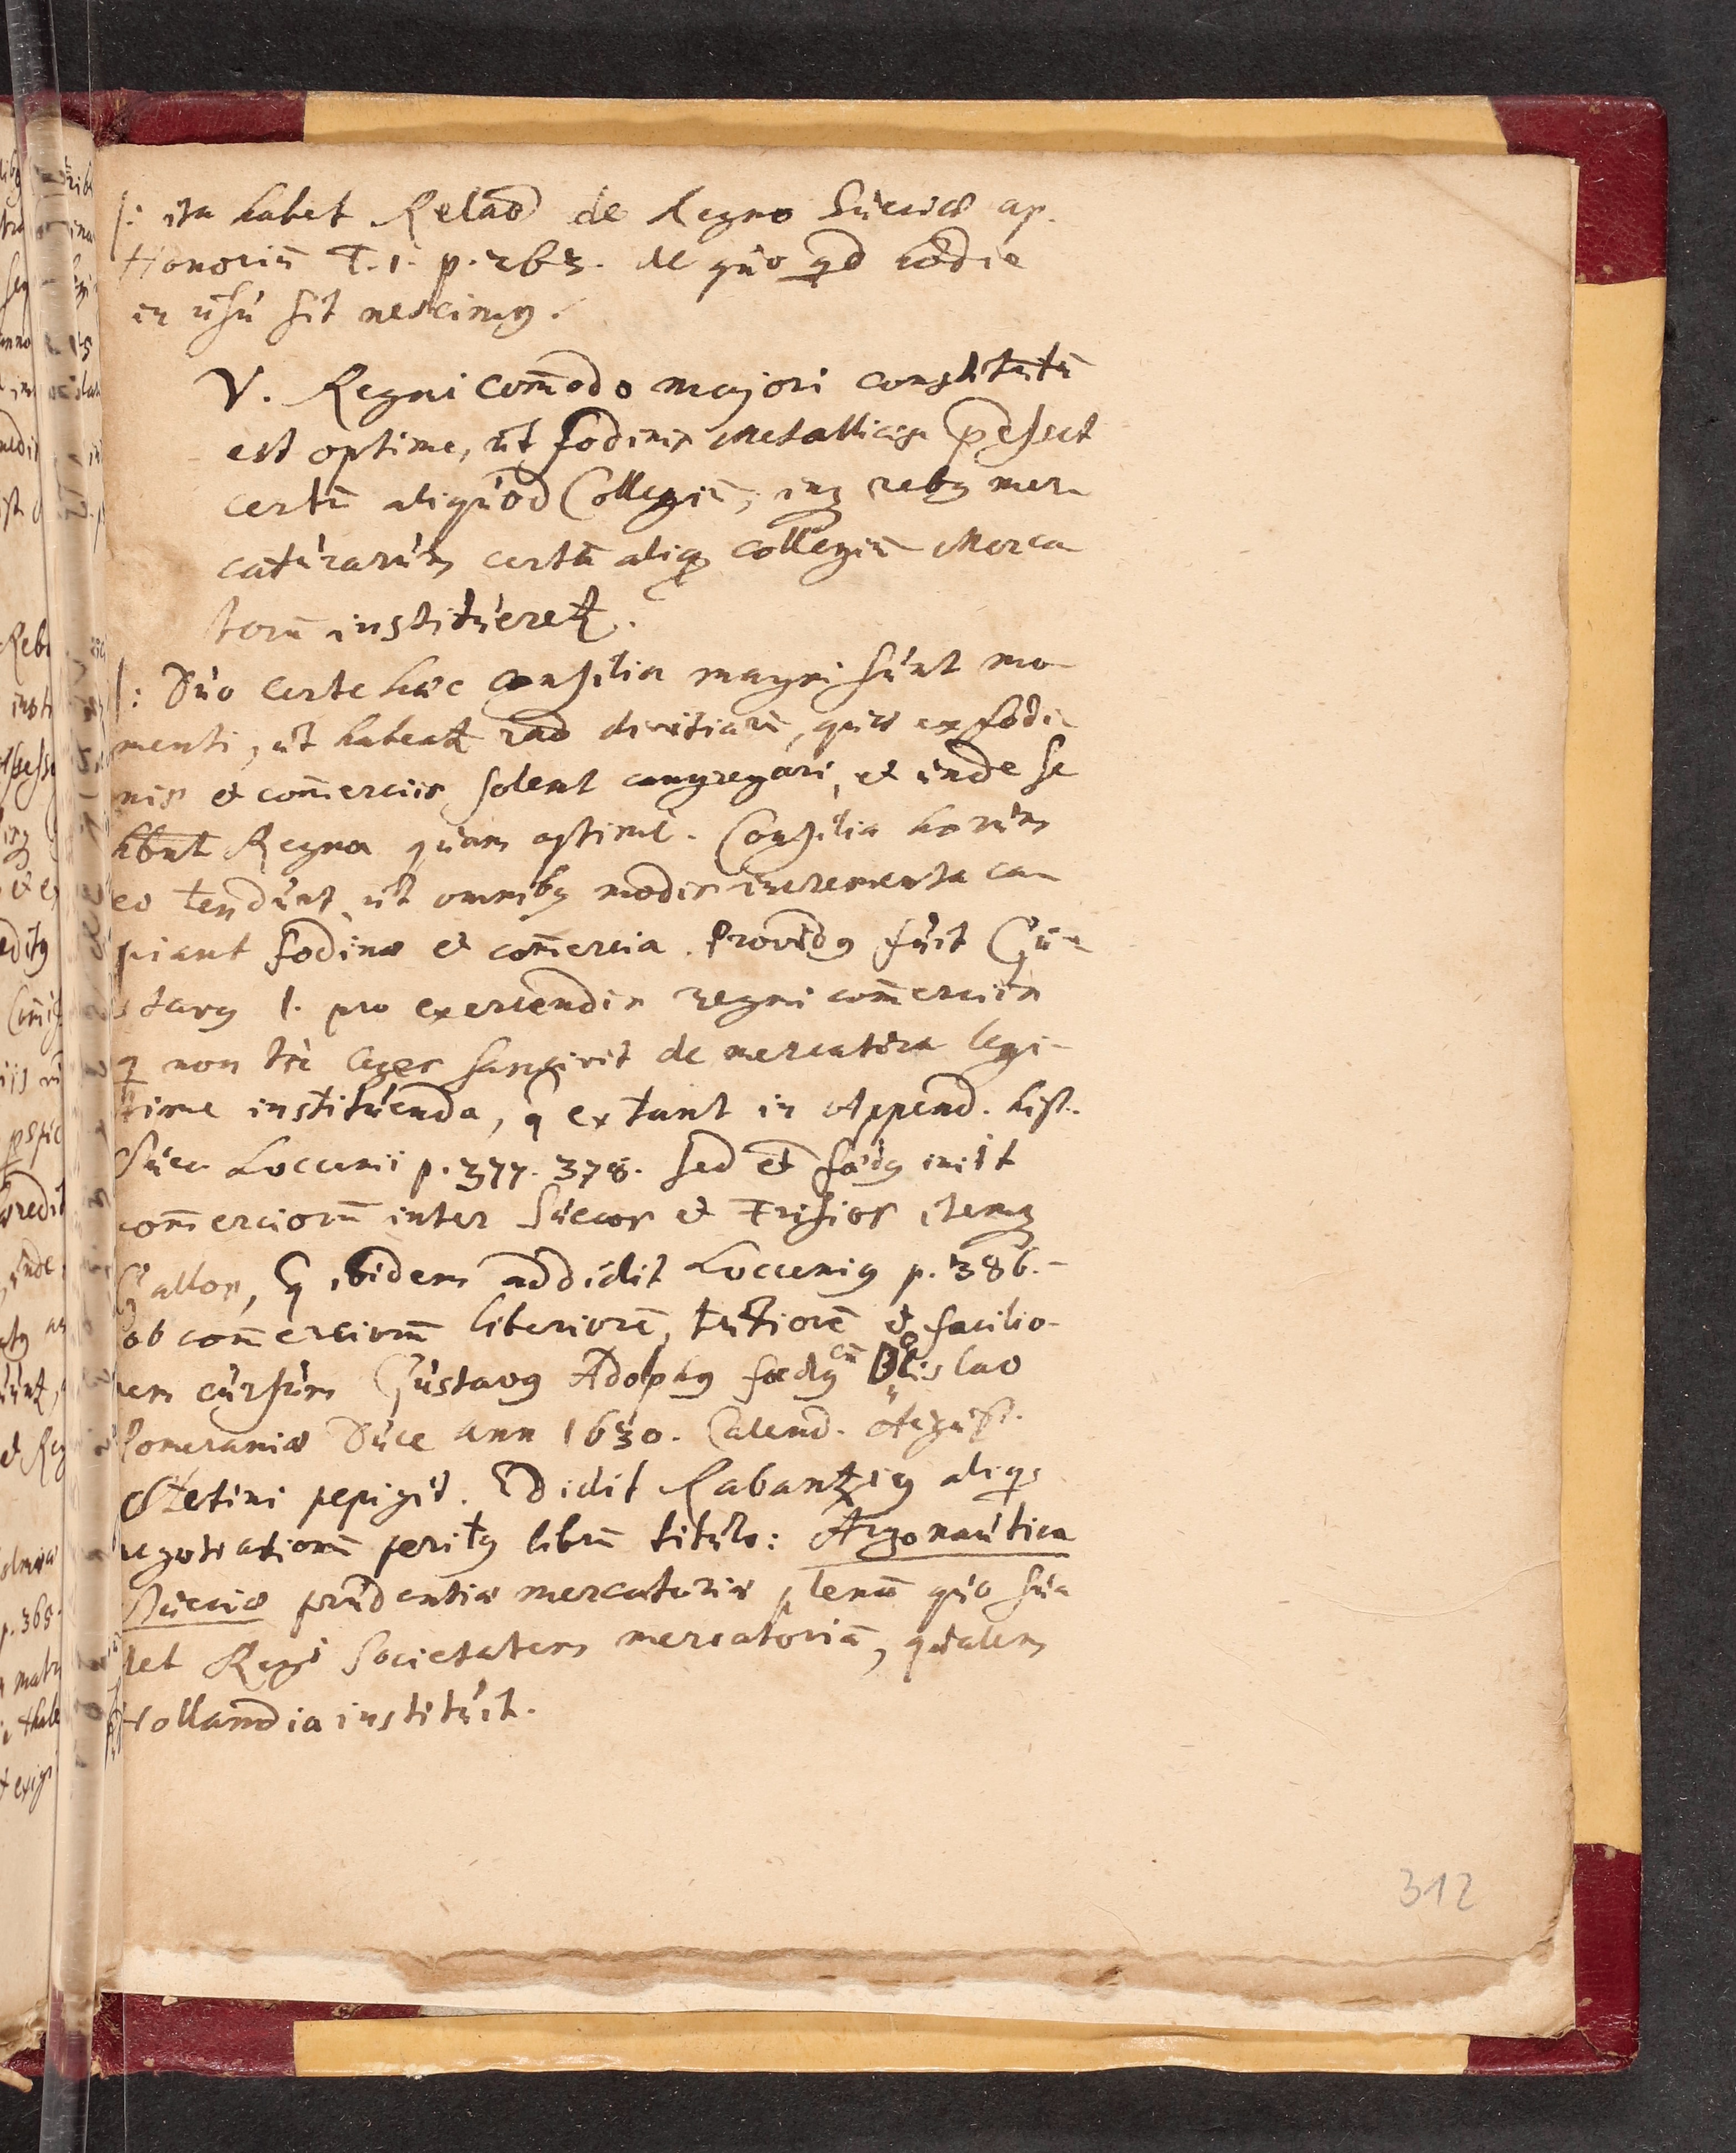 /: ita habet Relaõ de Regno Sueciæ ap.
Honoriũ T. 1. p. 263. de quo qd hodie
in usu sit nescimꝰ.
V. Regni com̃odo majori constitutũ
est optime, ut fodinis Metallicis p̃esset
certũ aliquod Collegiũ, inqꝫ rebꝰ mer-
caturarum certũ aliqꝫ collegiũ Merca-
torũ institueret̃.
/: Duo certe hæc consilia magni sunt mo-
menti, ut habeat̃ raõ divitiarũ, quæ ex fodi-
nis et com̃erciis solent congregari, et inde se
hbnt Regna quam optimè. Consilia horum
eo tendunt ut omnibꝰ modis incrementa ca-
piant fodinæ et com̃ercia. Providꝰ fuit Gu-
stavꝰ 1. pro exercendis regni com̃erciis
q non leges sancivit de mercatura legi-
time instituenda, q extant in Append. hist.
Suec. Loccenii p. 377. 378. sed et fœdꝰ iniit
com̃erciorũ inter Suecos et Frisios itemqꝫ
Gallos, q ibidem addidit Locceniꝰ p. 386.-
ob com̃erciorũ liberiorẽ, tutiorẽ et facilio-
rem cursum Gustavꝰ Adolphꝰ fœdꝰ cũ Bogislao
Pomeraniæ Duce ann 1630. Calend. August.
Stetini pepigit. Edidit Rabantziꝰ aliqꝫ
negotiationũ peritꝰ librũ titulo: Argonautica
Sueciæ prudentiæ mercatoriæ plenũ quo sua
det Regi Societatem mercatoriã, qualem
Hollandia instituit.
312